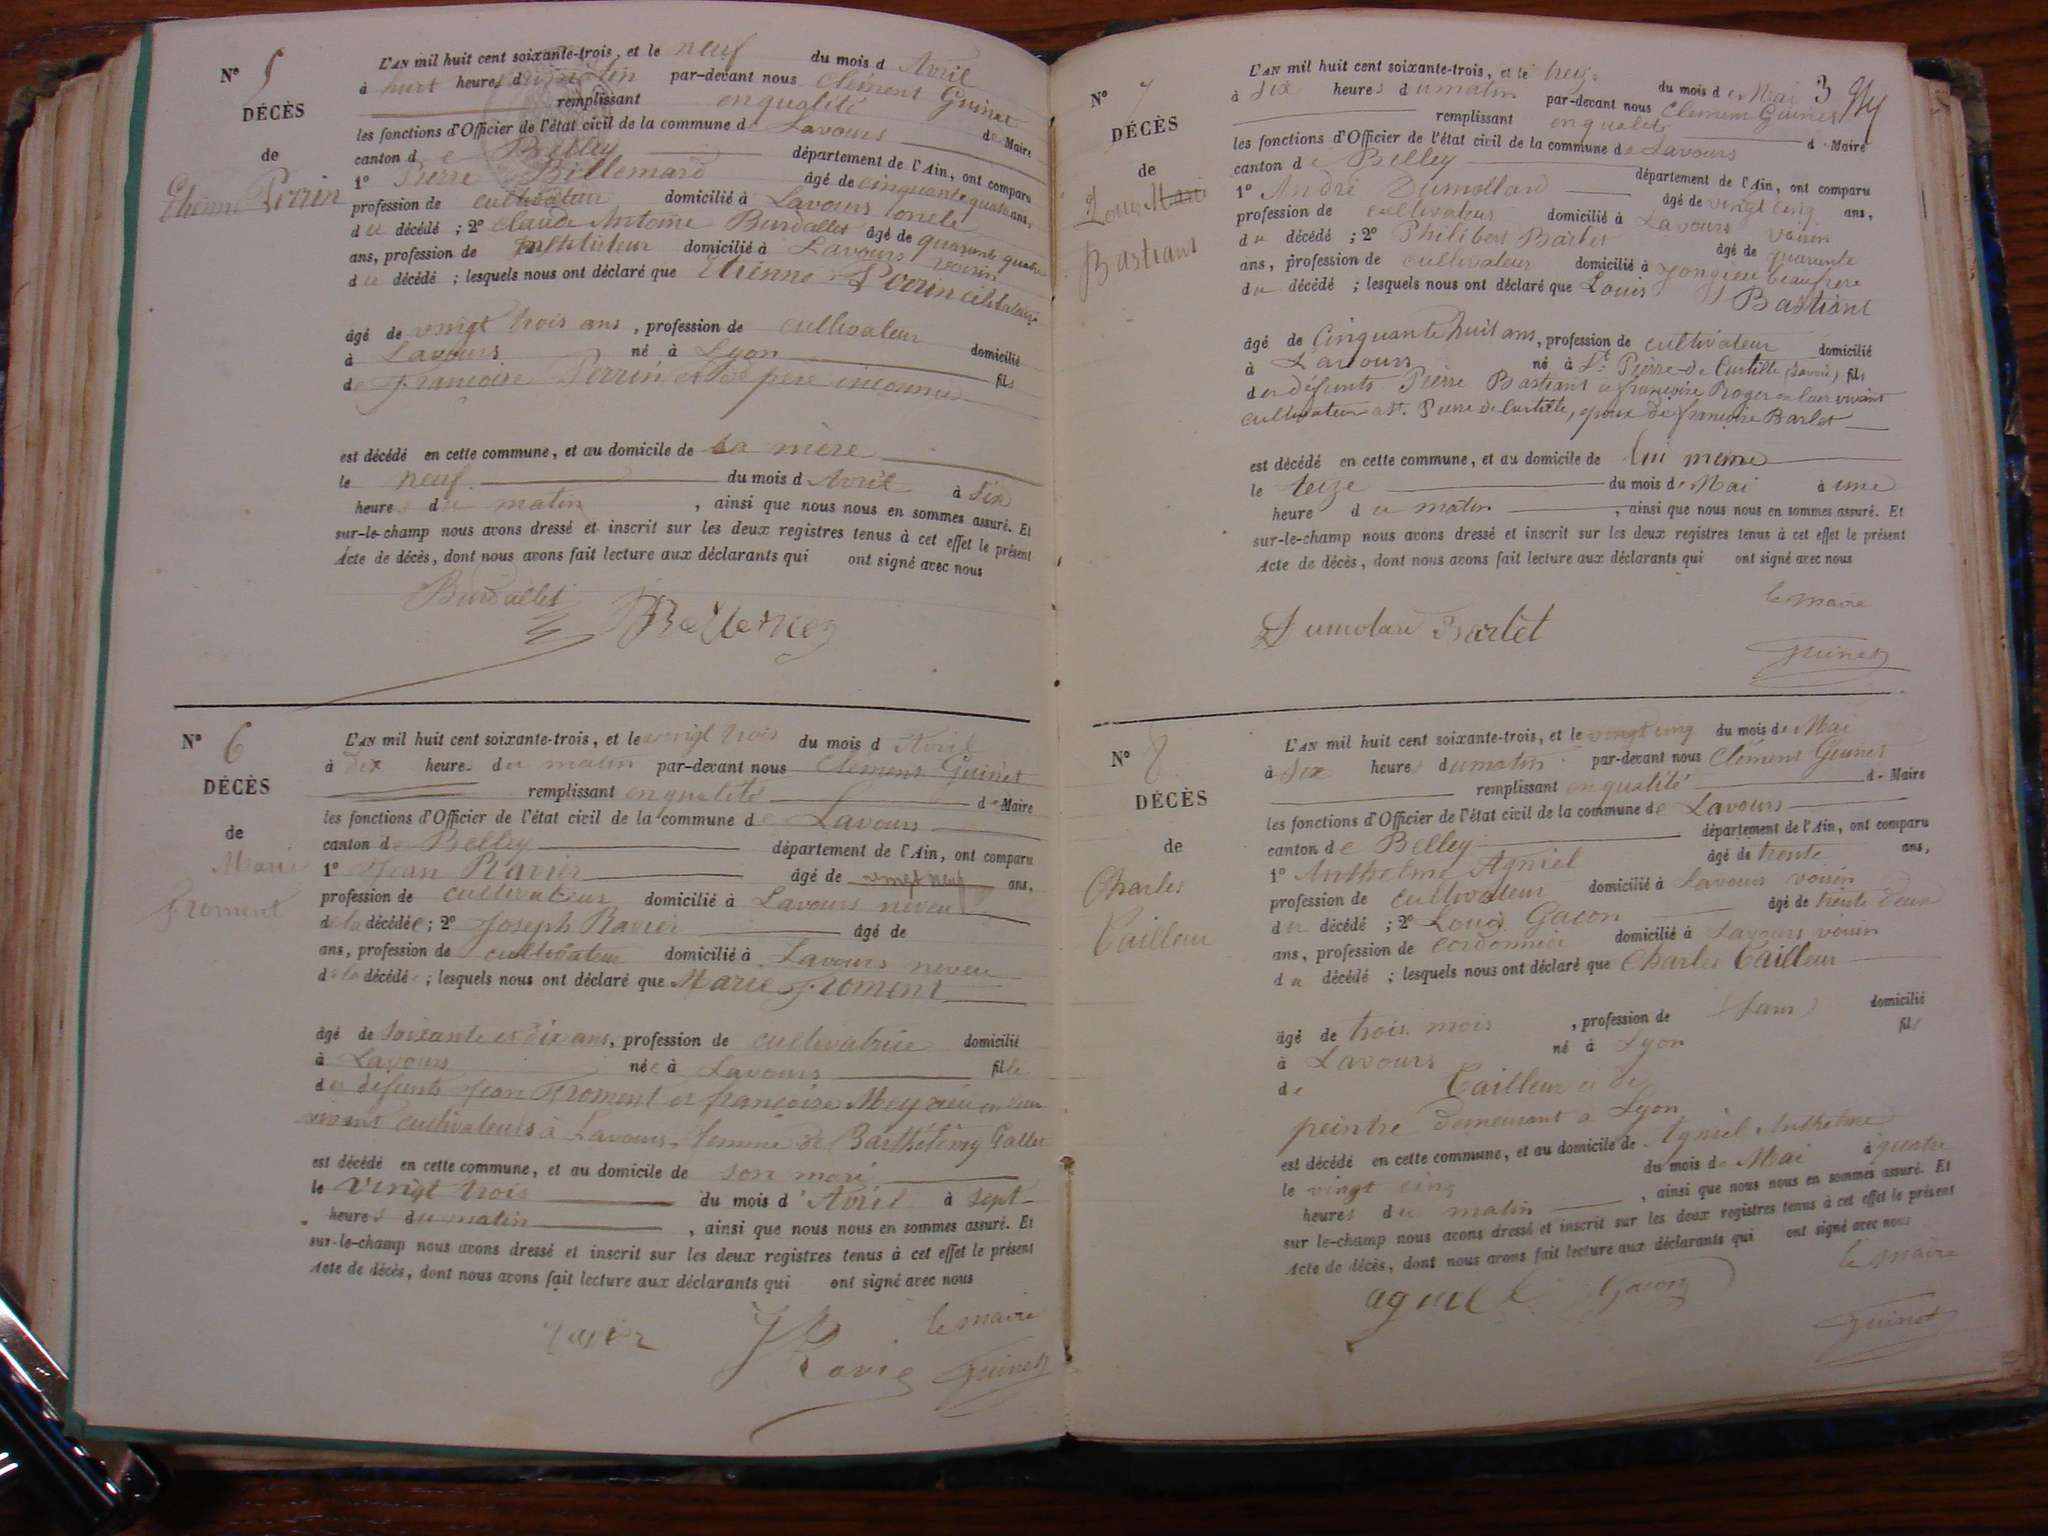 N° 5
DÉCÈS
de
Etienne Perrin
L'AN mil huit cent soixante-trois, et le neuf du mois d Avril
à huit heures du matin par-devant nous Clément Guinet
remplissant en qualité de Maire
les fonctions d'Officier de l'état civil de la commune de Lavours
canton de Belley département de l'Ain, ont comparu
1° Pierre Billemard âgé de cinquante quatre ans,
profession de cultivateur domicilié à Lavours oncle
du décédé ; 2° Claude Antoine Burdallet âgé de quarante quatre
ans, profession de instituteur domicilié à Lavours voisin
du décédé ; lesquels nous ont déclaré que Etienne Perrin célibataire
âgé de vingt trois ans, profession de cultivateur domicilié
à Lavours né à Lyon fils
de Françoise Perrin et de père inconnu
est décédé en cette commune, et au domicile de sa mère
le neuf du mois d Avril à six
heures du matin, ainsi que nous nous en sommes assuré. Et
sur-le-champ nous avons dressé et inscrit sur les deux registres tenus à cet effet le présent
Acte de décès, dont nous avons fait lecture aux déclarants qui ont signé avec nous
Burdallet
N° 6
DÉCÈS
de
Marie
Froment
L'AN mil huit cent soixante-trois, et le vingt trois du mois d Avril
à dix heures du matin par-devant nous Clément Guinet
remplissant en qualité de Maire
les fonctions d'Officier de l'état civil de la commune de Lavours
canton de Belley département de l'Ain, ont comparu
1° Jean Ravier âgé de vingt neuf ans,
profession de cultivateur domicilié à Lavours neveu
de la décédée ; 2° Joseph Ravier âgé de
ans, profession de cultivateur domicilié à Lavours neveu
de la décédée ; lesquels nous ont déclaré que Marie Froment
âgé de soixante et dix ans, profession de cultivatrice domicilié
à Lavours née à Lavours fille
des défunts Jean Froment et françoise Meyrieu en leur
vivant cultivateurs à Lavours, femme de Barthélemy Gallet
est décédé en cette commune, et au domicile de son mari
le vingt trois du mois d'Avril à sept
heures du matin, ainsi que nous nous en sommes assuré. Et
sur-le-champ nous avons dressé et inscrit sur les deux registres tenus à cet effet le présent
Acte de décès, dont nous avons fait lecture aux déclarants qui ont signé avec nous
le maire
Ravier Guinet
3
N° 7
DÉCÈS
de
Louis Marie
Bastiant
L'AN mil huit cent soixante-trois, et le treize du mois de Mai
à six heures du matin par-devant nous Clément Guinet
remplissant en qualité de Maire
les fonctions d'Officier de l'état civil de la commune de Lavours
canton de Belley département de l'Ain, ont comparu
1° André Dumollard âgé de vingt cinq ans,
profession de cultivateur domicilié à Lavours voisin
du décédé ; 2° Philibert Barlet âgé de quarante
ans, profession de cultivateur domicilié à Jongieu beaufrère
du décédé ; lesquels nous ont déclaré que Louis Bastiant
âgé de Cinquante huit ans, profession de cultivateur domicilié
à Lavours né à St Pierre de Curtille (Savoie) fils
des défunts Pierre Bastiant et françoise Roger en leur vivant
cultivateurs à St. Pierre de Curtille, époux de françoise Barlet
est décédé en cette commune, et au domicile de lui même
le treize du mois de Mai à une
heure du matin, ainsi que nous nous en sommes assuré. Et
sur-le-champ nous avons dressé et inscrit sur les deux registres tenus à cet effet le présent
Acte de décès, dont nous avons fait lecture aux déclarants qui ont signé avec nous
le maire
Dumolard Barlet
Guinet
N° 8
DÉCÈS
de
Charles
Tailleur
L'AN mil huit cent soixante-trois, et le vingt cinq du mois de Mai
à six heures du matin par-devant nous Clément Guinet
remplissant en qualité de Maire
les fonctions d'Officier de l'état civil de la commune de Lavours
canton de Belley département de l'Ain, ont comparu
1° Anthelme Agniel âgé de trente ans,
profession de cultivateur domicilié à Lavours voisin
du décédé ; 2° Louis Gacon âgé de trente deux
ans, profession de cordonnier domicilié à Lavours voisin
du décédé ; lesquels nous ont déclaré que Charles Tailleur
âgé de trois mois, profession de (sans) domicilié
à Lavours né à Lyon fils
de Tailleur et de
peintre demeurant à Lyon
est décédé en cette commune, et au domicile de Agniel Anthelme
le vingt cinq du mois de Mai à quatre
heures du matin, ainsi que nous nous en sommes assuré. Et
sur le-champ nous avons dressé et inscrit sur les deux registres tenus à cet effet le présent
Acte de décès, dont nous avons fait lecture aux déclarants qui ont signé avec nous
le maire
agniel Gacon
Guinet